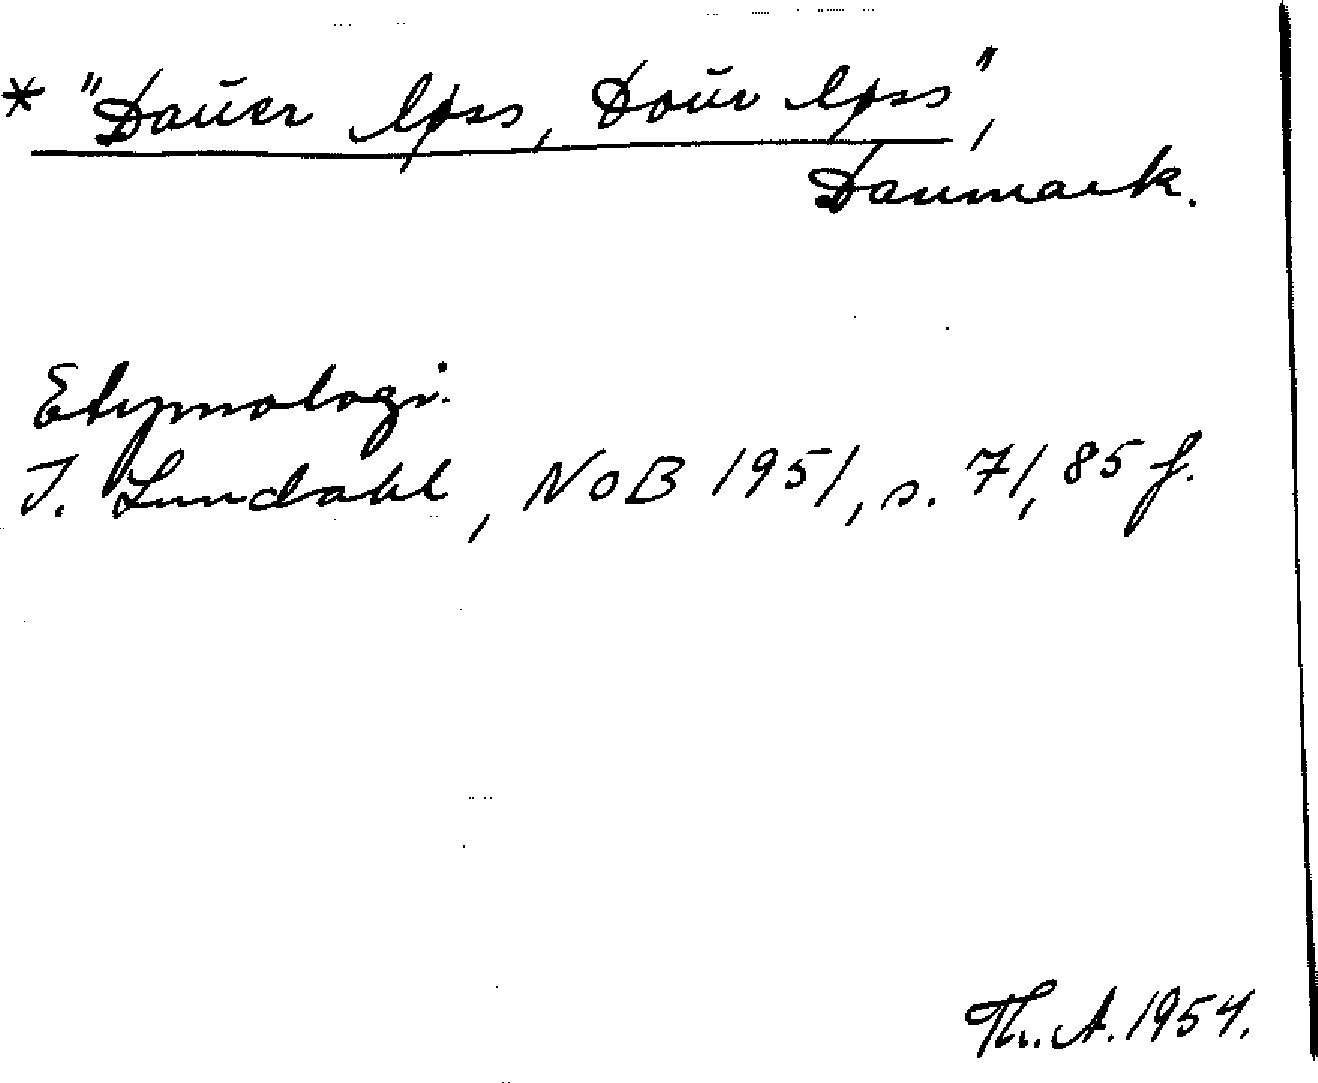 * "Daūer løss, Doūr løss",
Danmark.
Etymologi.
I. Lundahl, NoB 1951, s. 71, 85 f.
Th. A. 1954.